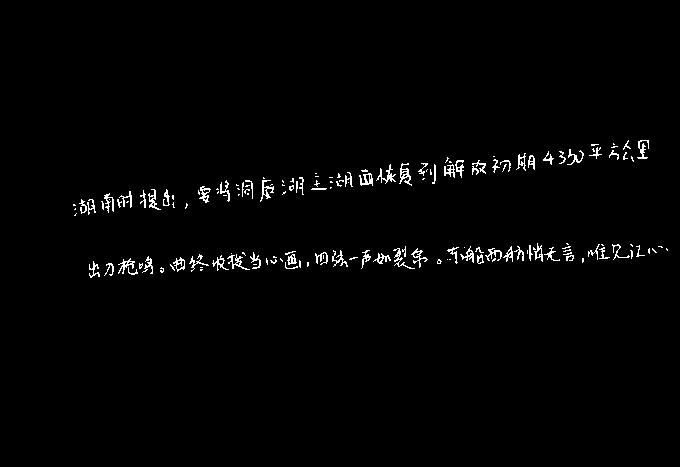 湖南时提出，要将洞庭湖主湖面恢复到解放初期4350平方公里
出刀枪鸣。曲终收拨当心画，四弦一声如裂帛。东船西舫悄无言，唯见江心